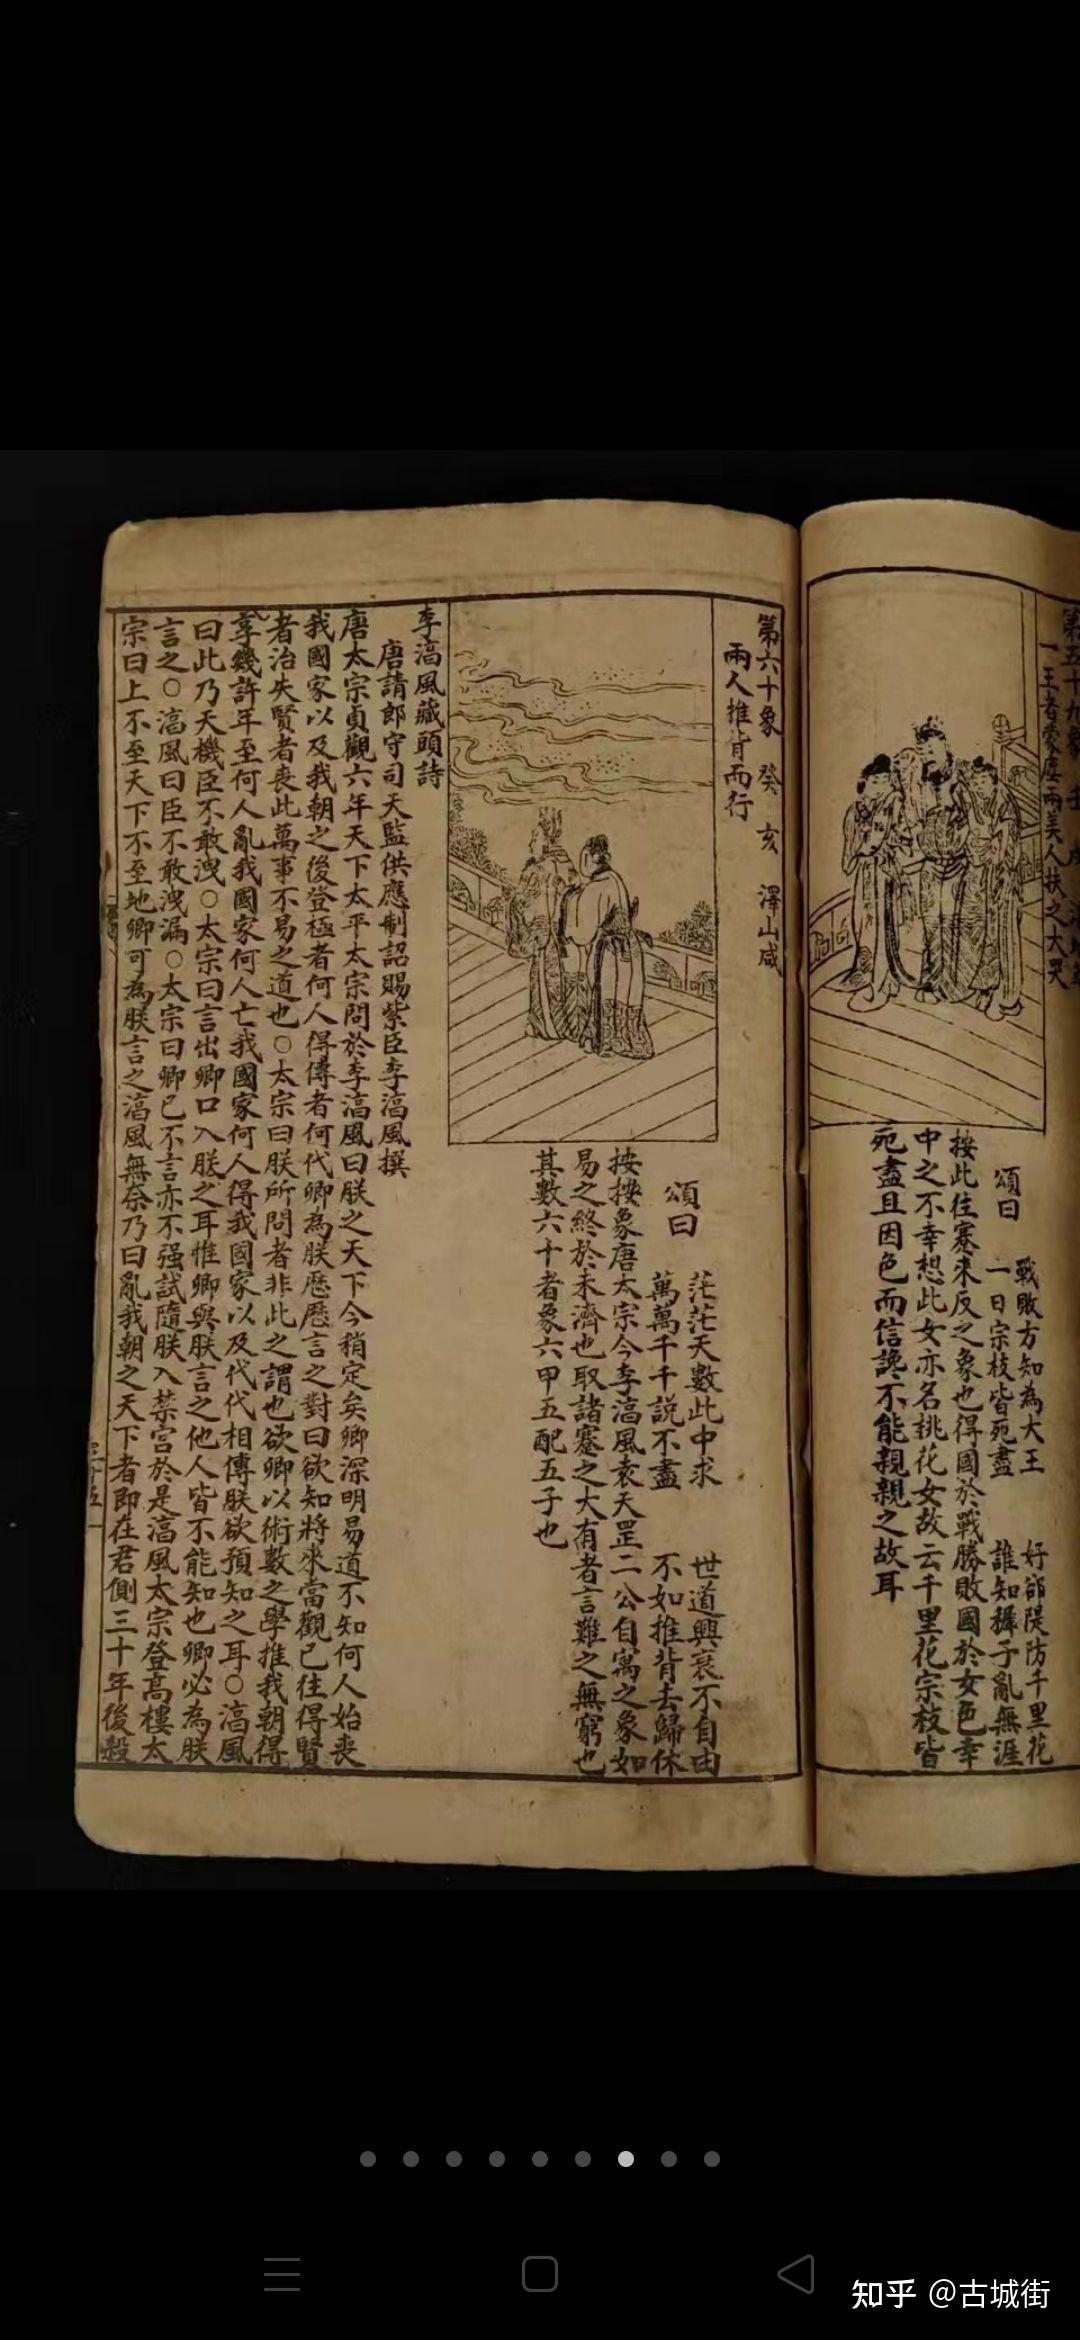 第五十九象 壬
一王者蒙塵兩美人扶之大哭
頌曰
戰敗方知為大王 好卻隄防千里花
一日宗枝皆死盡 誰知穉子亂無涯
按此往蹇來反之象也得國於戰勝敗國於女色幸
中之不幸想此女亦名桃花女故云千里花宗枝皆
死盡且因色而信讒不能親親之故耳
第六十象 癸 亥 澤山咸
兩人推背而行
頌曰
茫茫天數此中求 世道興衰不自由
萬萬千千說不盡 不如推背去歸休
按按象唐太宗令李淳風袁天罡二公自寓之象如
易之終於未濟也取諸蹇之大有者言難之無窮也
其數六十者象六甲五配五子也
李淳風藏頭詩
唐請郎守司天監供應制詔賜紫臣李淳風撰
唐太宗貞觀六年天下太平太宗問於李淳風曰朕之天下今稍定矣卿深明易道不知何人始喪
我國家以及我朝之後登極者何人得傳者何代卿為朕歷歷言之對曰欲知將來當觀已往得賢
者治失賢者喪此萬事不易之道也○太宗曰朕所問者非此之謂也欲卿以術數之學推我朝得
享幾許年至何人亂我國家何人亡我國家何人得我國家以及代代相傳朕欲預知之耳○淳風
曰此乃天機臣不敢洩○太宗曰言出卿口入朕之耳惟卿與朕言之他人皆不能知也卿必為朕
言之○淳風曰臣不敢洩漏○太宗曰卿已不言亦不强試隨朕入禁宮於是淳風太宗登高樓太
宗曰上不至天下不至地卿可為朕言之淳風無奈乃曰亂我朝之天下者即在君側三十年後殺
知乎 @古城街